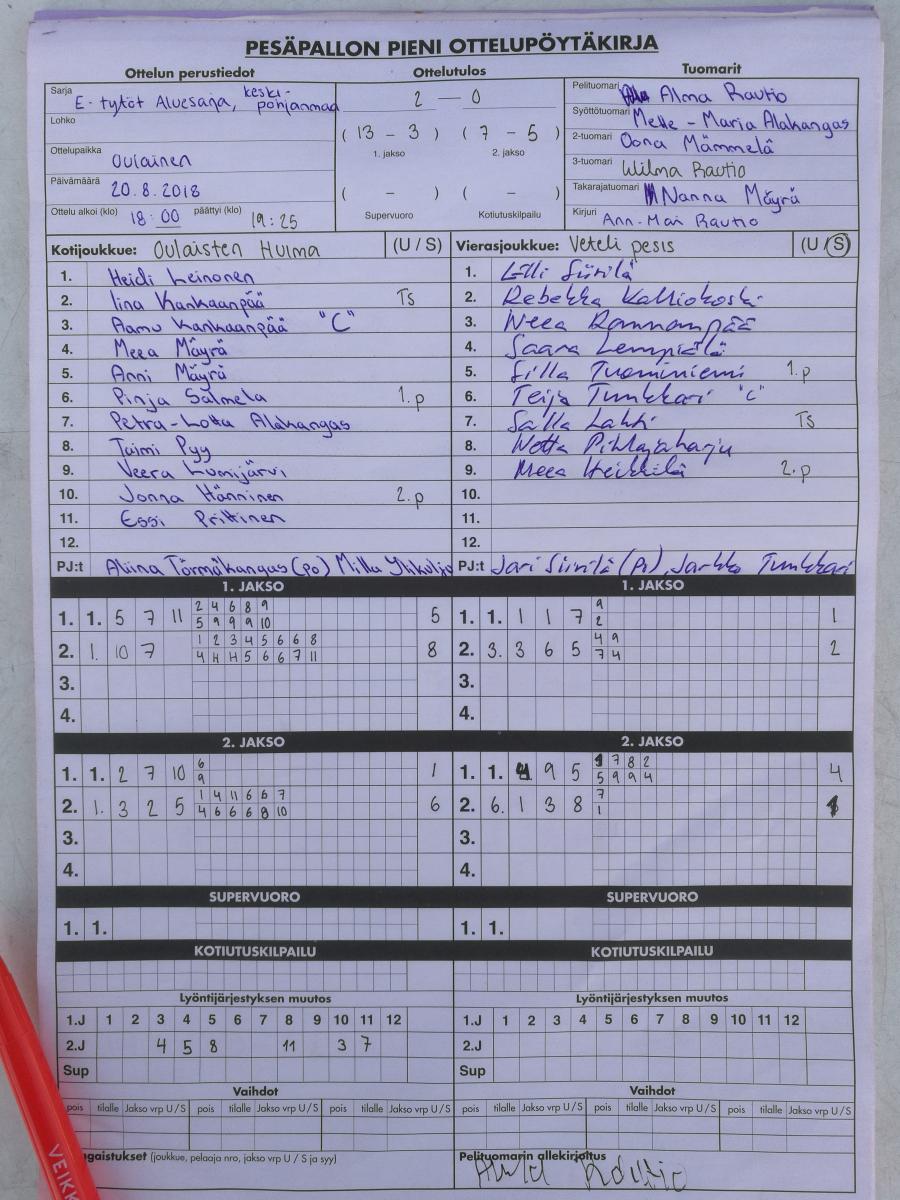 PESÄPALLON PIENI OTTELUPÖYTÄKIRJA
Ottelun perustiedot Ottelutulos Tuomarit
Sarja E-tytöt Aluesarja, keski-pohjanmaa
Lohko
Ottelupaikka Oulainen
Päivämäärä 20.8.2018
Ottelu alkoi (klo) 18:00 päättyi (klo) 19:25
2 — 0
(13 - 3) (7 - 5)
1. jakso 2. jakso
( - ) ( - )
Supervuoro Kotiutuskilpailu
Pelituomari Alma Rautio
Syöttötuomari Mette-Maria Alakangas
2-tuomari Oona Mämmelä
3-tuomari Wilma Rautio
Takarajatuomari Nanna Mäyrä
Kirjuri Ann-Mari Rautio
Kotijoukkue: Oulaisten Huima (U / S) Vierasjoukkue: Veteli pesis (U / S)
1. Heidi Leinonen 1. Lilli Siirilä
2. Iina Kankaanpää Ts 2. Rebekka Kalliokoski
3. Aamu Kankaanpää "C" 3. Neea Rannanpää
4. Meea Mäyrä 4. Saara Lempiälä
5. Anni Mäyrä 5. Silla Tuominiemi 1.p
6. Pinja Salmela 1.p 6. Teija Tunkkari "C"
7. Petra-Lotta Alakangas 7. Salla Lahti Ts
8. Taimi Pyy 8. Netta Pihlajaharju
9. Veera Lumijärvi 9. Meea Heikkilä 2.p
10. Jonna Hänninen 2.p 10.
11. Essi Prittinen 11.
12. 12.
PJ:t Alvina Törmäkangas (po) Milla PJ:t Jari Siirilä (Pj), Jarkko Tunkkari
1. JAKSO 1. JAKSO
2 4 6 8 9 9
1. 1. 5 7 11 5 1. 1. 1 1 7 1
5 9 9 9 10 2
1 2 3 4 5 6 6 8 4 9
2. 1. 10 7 8 2. 3. 3 6 5 2
4 4 4 5 6 6 7 11 7 4
3. 3.
4. 4.
2. JAKSO 2. JAKSO
6 7 8 2
1. 1. 2 7 10 1 1. 1. 9 5 4
9 5 9 9 4
1 4 11 6 6 7 7
2. 1. 3 2 5 6 2. 6. 1 3 8 1
4 6 6 6 8 10 1
3. 3.
4. 4.
SUPERVUORO SUPERVUORO
1. 1. 1. 1.
KOTIUTUSKILPAILU KOTIUTUSKILPAILU
Lyöntijärjestyksen muutos Lyöntijärjestyksen muutos
1.J 1 2 3 4 5 6 7 8 9 10 11 12 1.J 1 2 3 4 5 6 7 8 9 10 11 12
2.J 4 5 8 11 3 7 2.J
Sup Sup
Vaihdot Vaihdot
pois tilalle Jakso vrp U/S pois tilalle Jakso vrp U/S pois tilalle Jakso vrp U/S pois tilalle Jakso vrp U/S pois tilalle Jakso vrp U/S pois tilalle Jakso vrp U/S
gaistukset (joukkue, pelaaja nro, jakso vrp U / S ja syy) Pelituomarin allekirjoitus
VEIKK